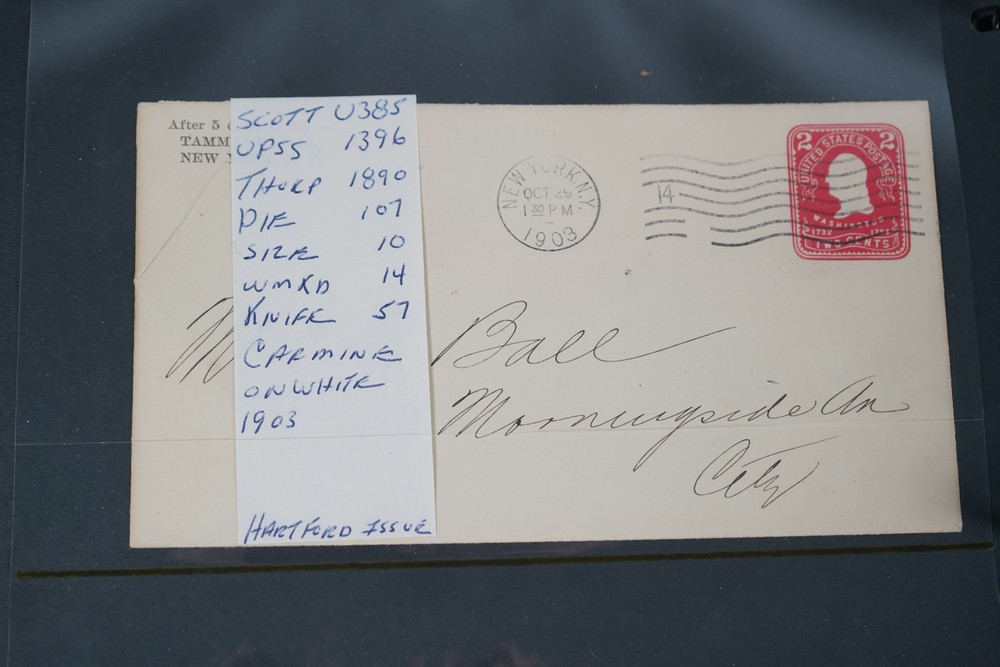 After 5
TAMM
NEW
SCOTT U385
UPSS 1396
THORP 1890
DIE 107
SIZE 10
WMKD 14
KNIFE 57
CARMINE
ON WHITE
1903
HARTFORD ISSUE
NEW YORK, N.Y.
OCT 29
1 30 PM
1903
14
2 2
UNITED STATES POSTAGE
WASHINGTON
1732
TWO CENTS
M
Ball
Morningside Av
City